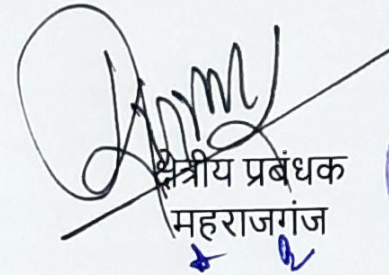 क्षेत्रीय प्रबंधक
महराजगंज